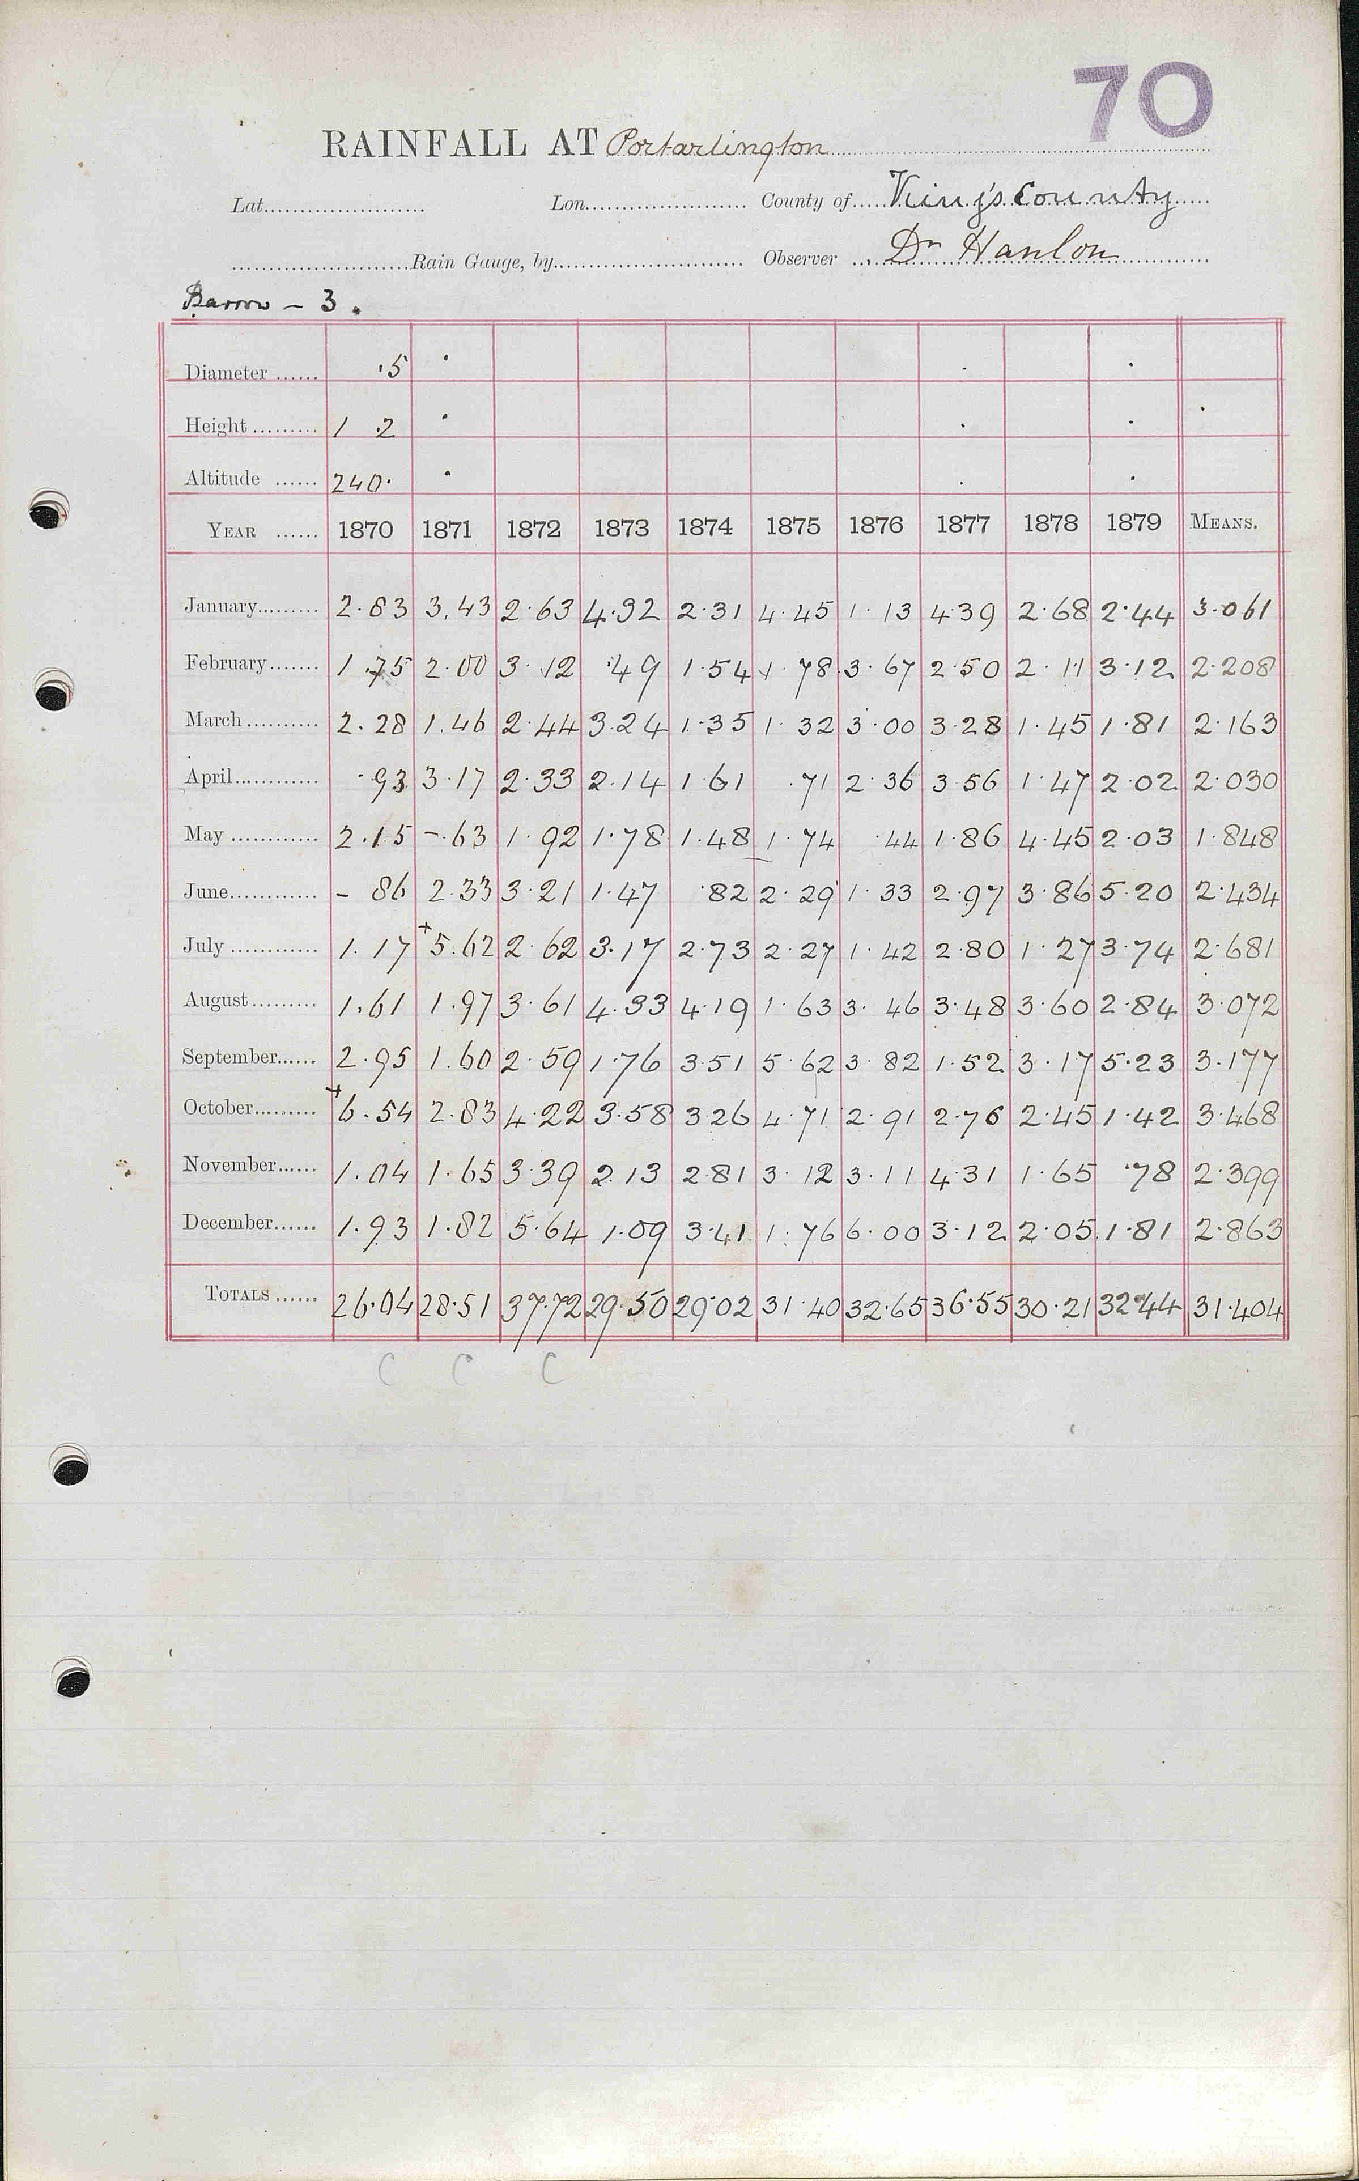 70
RAINFALL AT Portarlington
Lat. Lon. County of King's County
Rain Gauge, by Observer Dr Hanlon
Barrow - 3.
Diameter ...... .5
Height ......... 1 .2
Altitude ...... 240.
YEAR ...... 1870 1871 1872 1873 1874 1875 1876 1877 1878 1879 MEANS.
January......... 2.83 3.43 2.63 4.32 2.31 4.45 1.13 4.39 2.68 2.44 3.061
February....... 1.75 2.00 3.12 .49 1.54 1.78 3.67 2.50 2.11 3.12 2.208
March .......... 2.28 1.46 2.44 3.24 1.35 1.32 3.00 3.28 1.45 1.81 2.163
April............ .93 3.17 2.33 2.14 1.61 .71 2.36 3.56 1.47 2.02 2.030
May ............ 2.15 -.63 1.92 1.78 1.48 1.74 .44 1.86 4.45 2.03 1.848
June............ - 86 2.33 3.21 1.47 .82 2.29 1.33 2.97 3.86 5.20 2.434
July ............ 1.17 +5.62 2.62 3.17 2.73 2.27 1.42 2.80 1.27 3.74 2.681
August......... 1.61 1.97 3.61 4.33 4.19 1.63 3.46 3.48 3.60 2.84 3.072
September...... 2.95 1.60 2.59 1.76 3.51 5.62 3.82 1.52 3.17 5.23 3.177
October......... +6.54 2.83 4.22 3.58 3.26 4.71 2.91 2.76 2.45 1.42 3.468
November...... 1.04 1.65 3.39 2.13 2.81 3.12 3.11 4.31 1.65 .78 2.399
December...... 1.93 1.82 5.64 1.09 3.41 1.76 6.00 3.12 2.05 1.81 2.863
TOTALS ...... 26.04 28.51 37.72 29.50 29.02 31.40 32.65 36.55 30.21 32.44 31.404
C C C